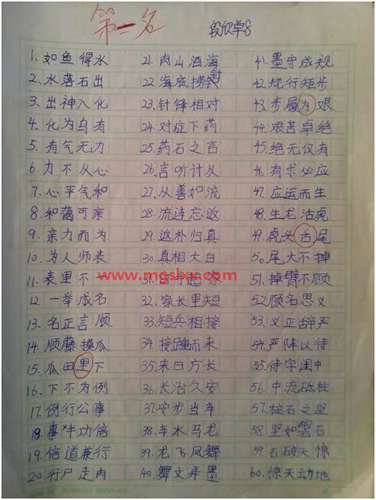 第一名
1.如鱼得水
2.水落石出
3.出神入化
4.化为乌有
5.有气无力
6.力不从心
7.心平气和
8.和蔼可亲
9.亲力而为
10.为人师表
11.表里不
12.一举成名
13.名正言顺
14.顺藤摸瓜
15.瓜田里下
16.下不为例
17.例行公事
18.事半功倍
19.倍道兼行
20.行尸走肉
21.肉山酒海
22.海底捞针
23.针锋相对
24.对症下药
25.药石之言
26.言听计从
27.从善如流
28.流连忘返
29.返朴归真
30.真相大白
起家
32.家长里短
33.短兵相接
34.接踵而来
35.来日方长
36.长治久安
37.安步当车
38.车水马龙
39.龙飞凤舞
40.舞文弄墨
41.墨守成规
42.规行矩步
43.步履为艰
44.艰苦卓绝
45.绝无仅有
46.有求必应
47.应运而生
48.生龙活虎
49.虎头舌尾
50.尾大不掉
51.掉臂不顾
52.顾名思义
53.义正辞严
54.严阵以待
55.待字闺中
56.中流砥柱
57.柱石之坚
58.坚如磐石
59.石破天惊
60.惊天动地